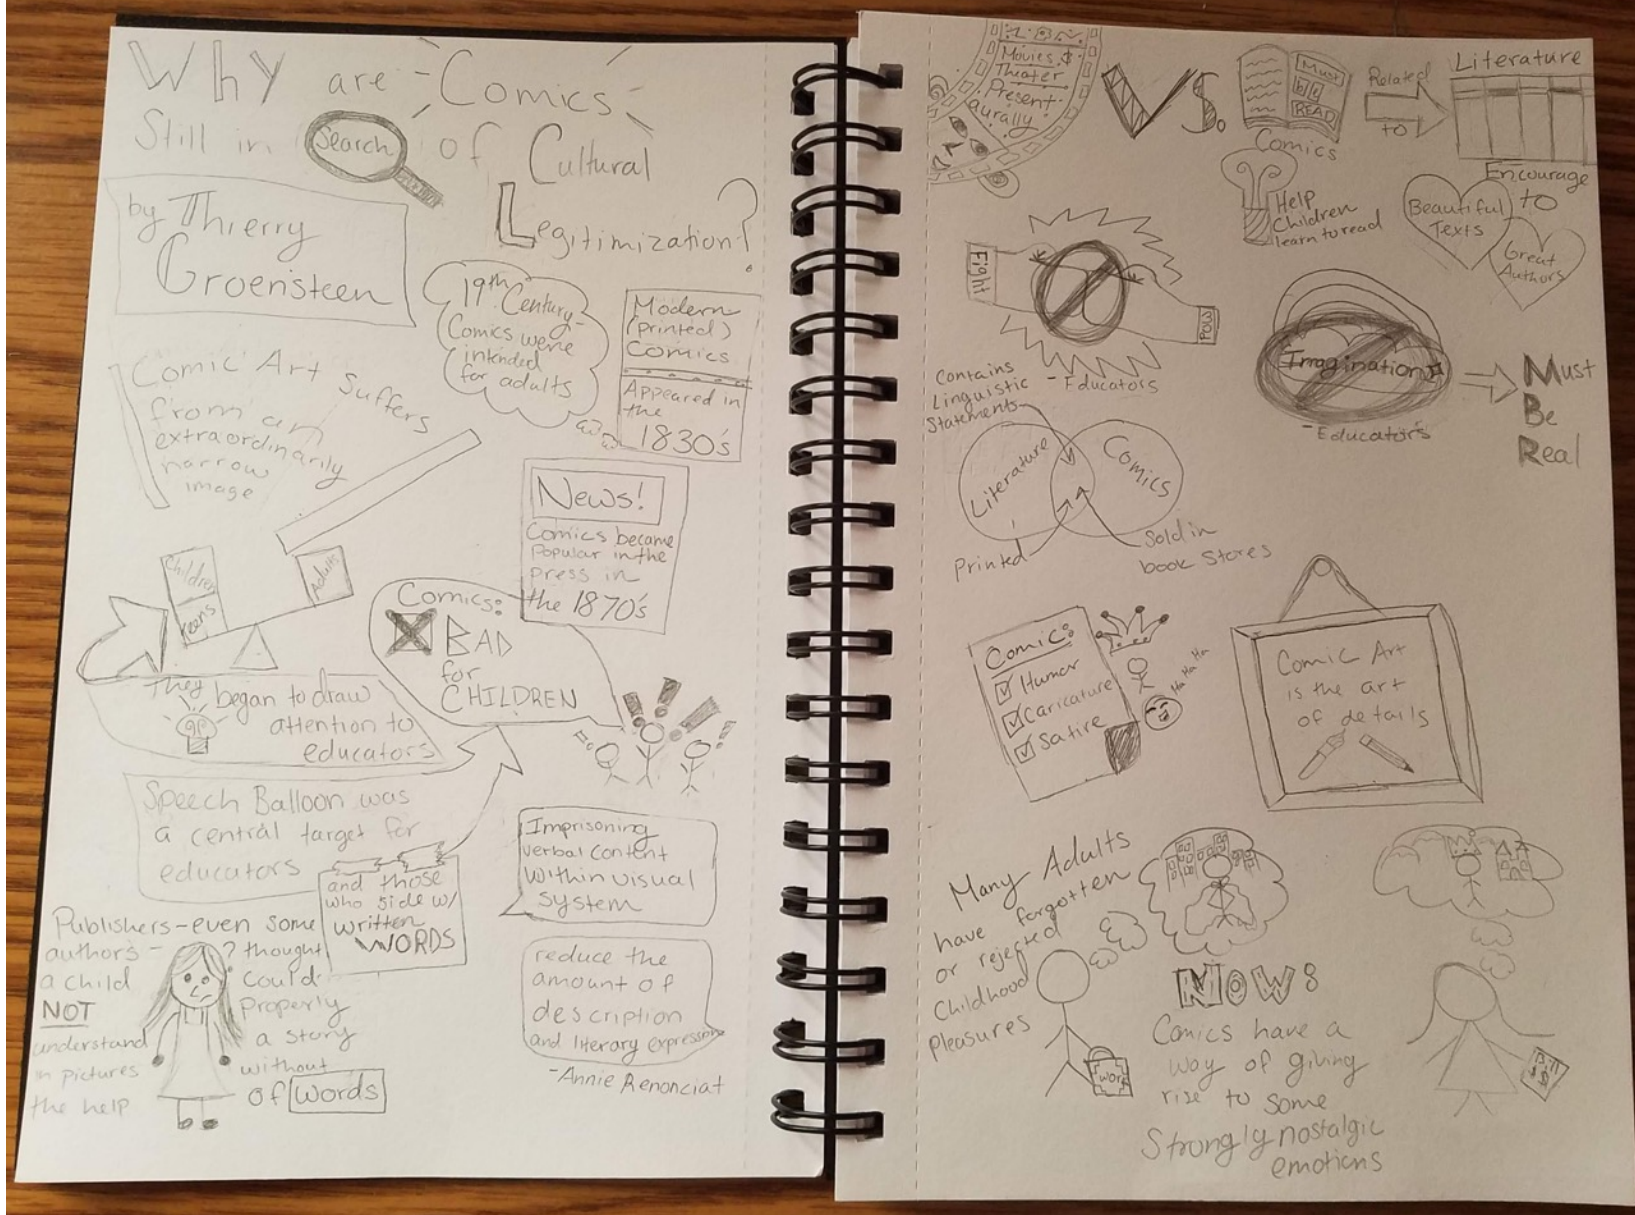 Why are Comics
Still in Search of Cultural
Legitimization?
by Thierry
Groensteen
19th Century-
Comics were
intended
for adults
Modern
(printed)
Comics
Appeared in
the
1830's
Comic Art Suffers
from an
extraordinarily
narrow
image
News!
Comics became
Popular in the
press in
the 1870's
Children
Teens
Adults
They began to draw
attention to
educators
Comics:
BAD
for
CHILDREN
Speech Balloon was
a central target for
educators
and those
who side w/
written
WORDS
Imprisoning
verbal content
within visual
system
reduce the
amount of
description
and literary expression
-Annie Renonciat
Publishers-even some
authors- ? thought
a child could
NOT properly
understand a story
in pictures without
the help of words
Movies $
Theater
Present
aurally
VS.
Must
be
READ
Comics
Related
to
Literature
Encourage
to
Beautiful
Texts
Great
Authors
Help
Children
learn to read
Fight
POW
-Educators
Imagination
-Educators
Must
Be
Real
Contains
Linguistic
Statements
Literature
Comics
Printed
Sold in
book stores
Comic:
Humor
Caricature
Satire
Ha Ha Ha
Comic Art
is the art
of details
Many Adults
have forgotten
or rejected
Childhood
Pleasures
Work
NOW:
Comics have a
way of giving
rise to some
Strongly nostalgic
emotions
Bill
$$